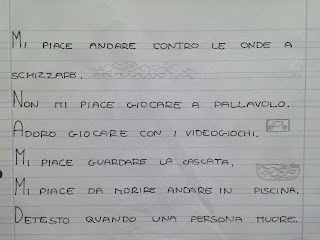 MI PIACE ANDARE CONTRO LE ONDE A
SCHIZZARE.
NON MI PIACE GIOCARE A PALLAVOLO.
ADORO GIOCARE CON I VIDEOGIOCHI.
MI PIACE GUARDARE LA CASCATA.
MI PIACE DA MORIRE ANDARE IN PISCINA.
DETESTO QUANDO UNA PERSONA MUORE.